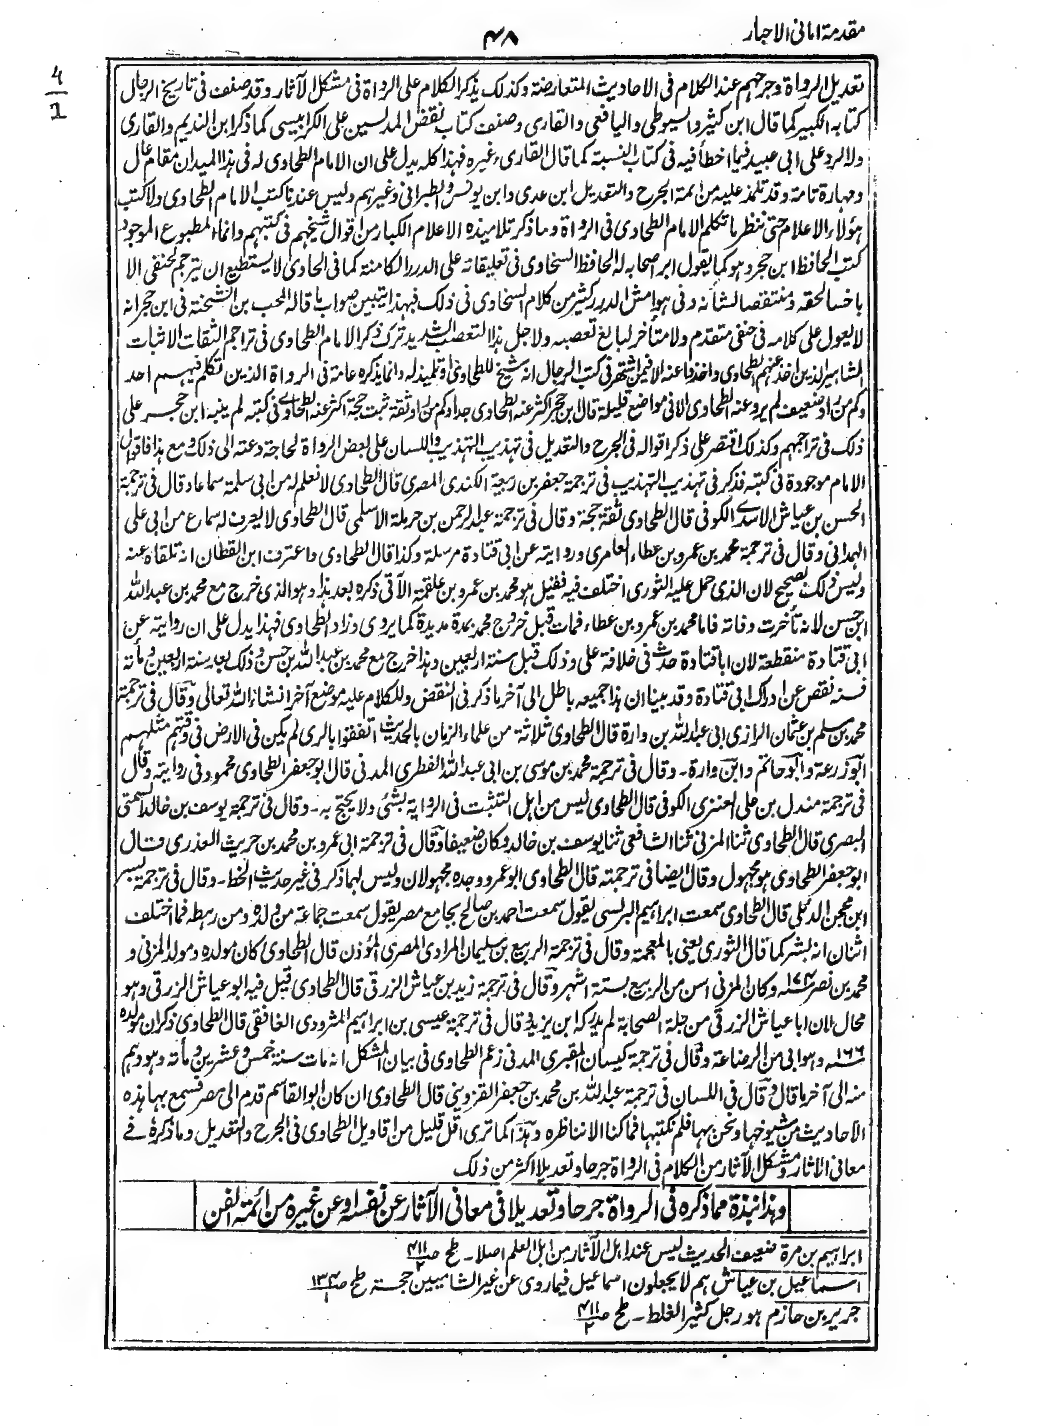 مقدمة امانی الاحبار
۴۸
4
1
تعدیل الرواة وجرحهم عند الکلام فی الاحادیث المتعارضة وکذلک یذکر الکلام علی الرواة فی مشکل الآثار وقد صنف فی تاریخ الرجال
کتابه الکبیر کما قال ابن کثیر والسیوطی والیافعی والقاری وصنف کتاب نقض المدلسین علی الکرابیسی کما ذکر ابن الندیم والقاری
وله الرد علی ابی عبید فیما اخطأ فیه فی کتاب النسبة کما قال القاری وغیره فهذا کله یدل علی ان الامام الطحاوی له فی هذا المیدان مقام عال
ومهارة تامة وقد تلمذ علیه من ائمة الجرح والتعدیل ابن عدی وابن یونس والطبرانی وغیرهم ولیس عندنا کتب الامام الطحاوی ولا کتب
هؤلاء الاعلام حتی ننظر ما تکلم الامام الطحاوی فی الرواة وما ذکر تلامیذه الاعلام الکبار من اقوال شیخهم فی کتبهم وانما المطبوع الموجود
کتب الحافظ ابن حجر وهو کما یقول ابر اصحابه له الحافظ السخاوی فی تعلیقاته علی الدرر الکامنة کما فی الحاوی لا یستطیع ان یترجم لحنفی الا
باخسا لحقه ومنتقصا لشأنه وفی هوامش الدرر کثیر من کلام السخاوی فی ذلک فبهذا یتبین صواب ما قاله المحب بن الشحنة فی ابن حجر انه
لا یعول علی کلامه فی حنفی متقدم ولا متأخر لبالغ تعصبه ولاجل هذا التعصب الشدید ترک ذکر الامام الطحاوی فی تراجم الثقات الاثبات
المشاهیر الذین اخذ عنهم الطحاوی واخذوا عنه الا فیمن اشتهر فی کتب الرجال انه شیخ للطحاوی او تلمیذ له وانما یذکره عامة فی الرواة الذین تکلم فیهم احد
وکم من راو ضعیف لم یرو عنه الطحاوی الا فی مواضع قلیلة قال ابن حجر اکثر عنه الطحاوی جدا وکم من راو ثقة ثبت حجة اکثر عنه الطحاوی فی کتبه لم ینبه ابن حجر علی
ذلک فی تراجمهم وکذلک اقتصر علی ذکر اقواله فی الجرح والتعدیل فی تهذیب التهذیب واللسان علی بعض الرواة لحاجة دعته الی ذلک ومع هذا فاقوال
الامام موجودة فی کتبه فذکر فی تهذیب التهذیب فی ترجمة جعفر بن ربیعة الکندی المصری قال الطحاوی لا نعلم له من ابی سلمة سماعا وقال فی ترجمة
الحسن بن عیاش الاسدی الکوفی قال الطحاوی ثقة حجة وقال فی ترجمة عبد الرحمن بن حرملة الاسلمی قال الطحاوی لا یعرف له سماع من ابی علی
الهمدانی وقال فی ترجمة محمد بن عمرو بن عطاء العامری وروایته عن ابی قتادة مرسلة وکذا قال الطحاوی واعترف ابن القطان انه تلقاه عنه
ولیس ذلک بصحیح لان الذی حمل علیه الثوری اختلف فیه فقیل هو محمد بن عمرو بن علقمة الآتی ذکره بعد هذا وهو الذی خرج مع محمد بن عبد الله
ابن حسن لانه تأخرت وفاته فاما محمد بن عمرو بن عطاء فمات قبل خروج محمد بمدة مدیدة کما یروی وزاد الطحاوی فهذا یدل علی ان روایته عن
ابی قتادة منقطعة لان ابا قتادة حدث فی خلافة علی وذلک قبل سنة اربعین وهذا خرج مع محمد بن عبد الله بن حسن وذلک بعد سنة اربعین ومائة
فسنه نقص عن ادراک ابی قتادة وقد بینا ان هذا جمیعه باطل الی آخر ما ذکر فی النقض وللکلام علیه موضع آخر انشاء الله تعالی وقال فی ترجمة
محمد بن مسلم بن عثمان الرازی ابی عبد الله بن وارة قال الطحاوی ثلاثة من علماء الزمان بالحدیث اتفقوا بالری لم یکن فی الارض فی وقتهم مثلهم
ابو زرعة وابو حاتم وابن وارة۔ وقال فی ترجمة محمد بن موسی بن ابی عبد الله الفطری المدنی قال ابو جعفر الطحاوی محمود فی روایته وقال
فی ترجمة مندل بن علی العنزی الکوفی قال الطحاوی لیس من اهل التثبت فی الروایة بشئی ولا یحتج به۔ وقال فی ترجمة یوسف بن خالد السمتی
البصری قال الطحاوی ثنا المزنی ثنا الشافعی ثنا یوسف بن خالد وکان ضعیفا وقال فی ترجمة ابی عمرو بن محمد بن حریث العذری قال
ابو جعفر الطحاوی هو مجهول وقال ایضا فی ترجمته قال الطحاوی ابو عمرو وجده مجهولان ولیس لهما ذکر فی غیر حدیث الخط۔ وقال فی ترجمة بسر
ابن محجن الدئلی قال الطحاوی سمعت ابراهیم البرلسی یقول سمعت احمد بن صالح بجامع مصر یقول سمعت جماعة من ولده ومن رهطه فما اختلف
اثنان انه بشر کما قال الثوری یعنی بالمعجمة وقال فی ترجمة الربیع بن سلیمان المرادی المصری المؤذن قال الطحاوی کان مولده ومولد المزنی و
محمد بن نصر سنة ۱۷۴ وکان المزنی اسن من الربیع بستة اشهر وقال فی ترجمة زید بن عیاش الزرقی قال الطحاوی قیل فیه ابو عیاش الزرقی وهو
محال لان ابا عیاش الزرقی من جلة الصحابة لم یدرکه ابن یزید وقال فی ترجمة عیسی بن ابراهیم المثرودی الغافقی قال الطحاوی ذکر ان مولده
سنة ۱۶۶ وهو ابی من الرضاعة وقال فی ترجمة کیسان المقبری المدنی زعم الطحاوی فی بیان المشکل انه مات سنة خمس وعشرین ومائة وهو وهم
منه الی آخر ما قال وقال فی اللسان فی ترجمة عبد الله بن محمد بن جعفر القزوینی قال الطحاوی ان کان ابو القاسم قدم الی مصر فسمع بها هذه
الاحادیث من شیوخها ونحن بها فلم نکتبها فما کنا الا نناظره وهذا کما تری اقل قلیل من اقاویل الطحاوی فی الجرح والتعدیل وما ذکره فی
معانی الاثار ومشکل الآثار من الکلام فی الرواة جرحا وتعدیلا اکثر من ذلک
وهذا نبذة مما ذکره فی الرواة جرحا وتعدیلا فی معانی الآثار عن نفسه او عن غیره من ائمة الفن
ابراهیم بن مرة ضعیف الحدیث لیس عند اهل الآثار من اهل العلم اصلا۔ طح ص ۴۱۱/۲
اسماعیل بن عیاش هم لا یجعلون اسماعیل فیما روی عن غیر الشامیین حجة طح ص ۱۳۴/۱
جریر بن حازم هو رجل کثیر الغلط۔ طح ص ۴۱۱/۲